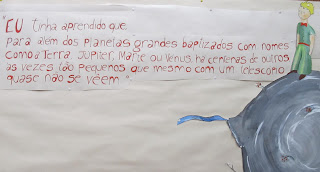 "EU tinha aprendido que,
Para além dos planetas grandes baptizados com nomes
como a Terra, Jupiter, Marte ou Venus, ha centenas de outros
as vezes tão Pequenos que mesmo com um telescopio
quase não se vêem"